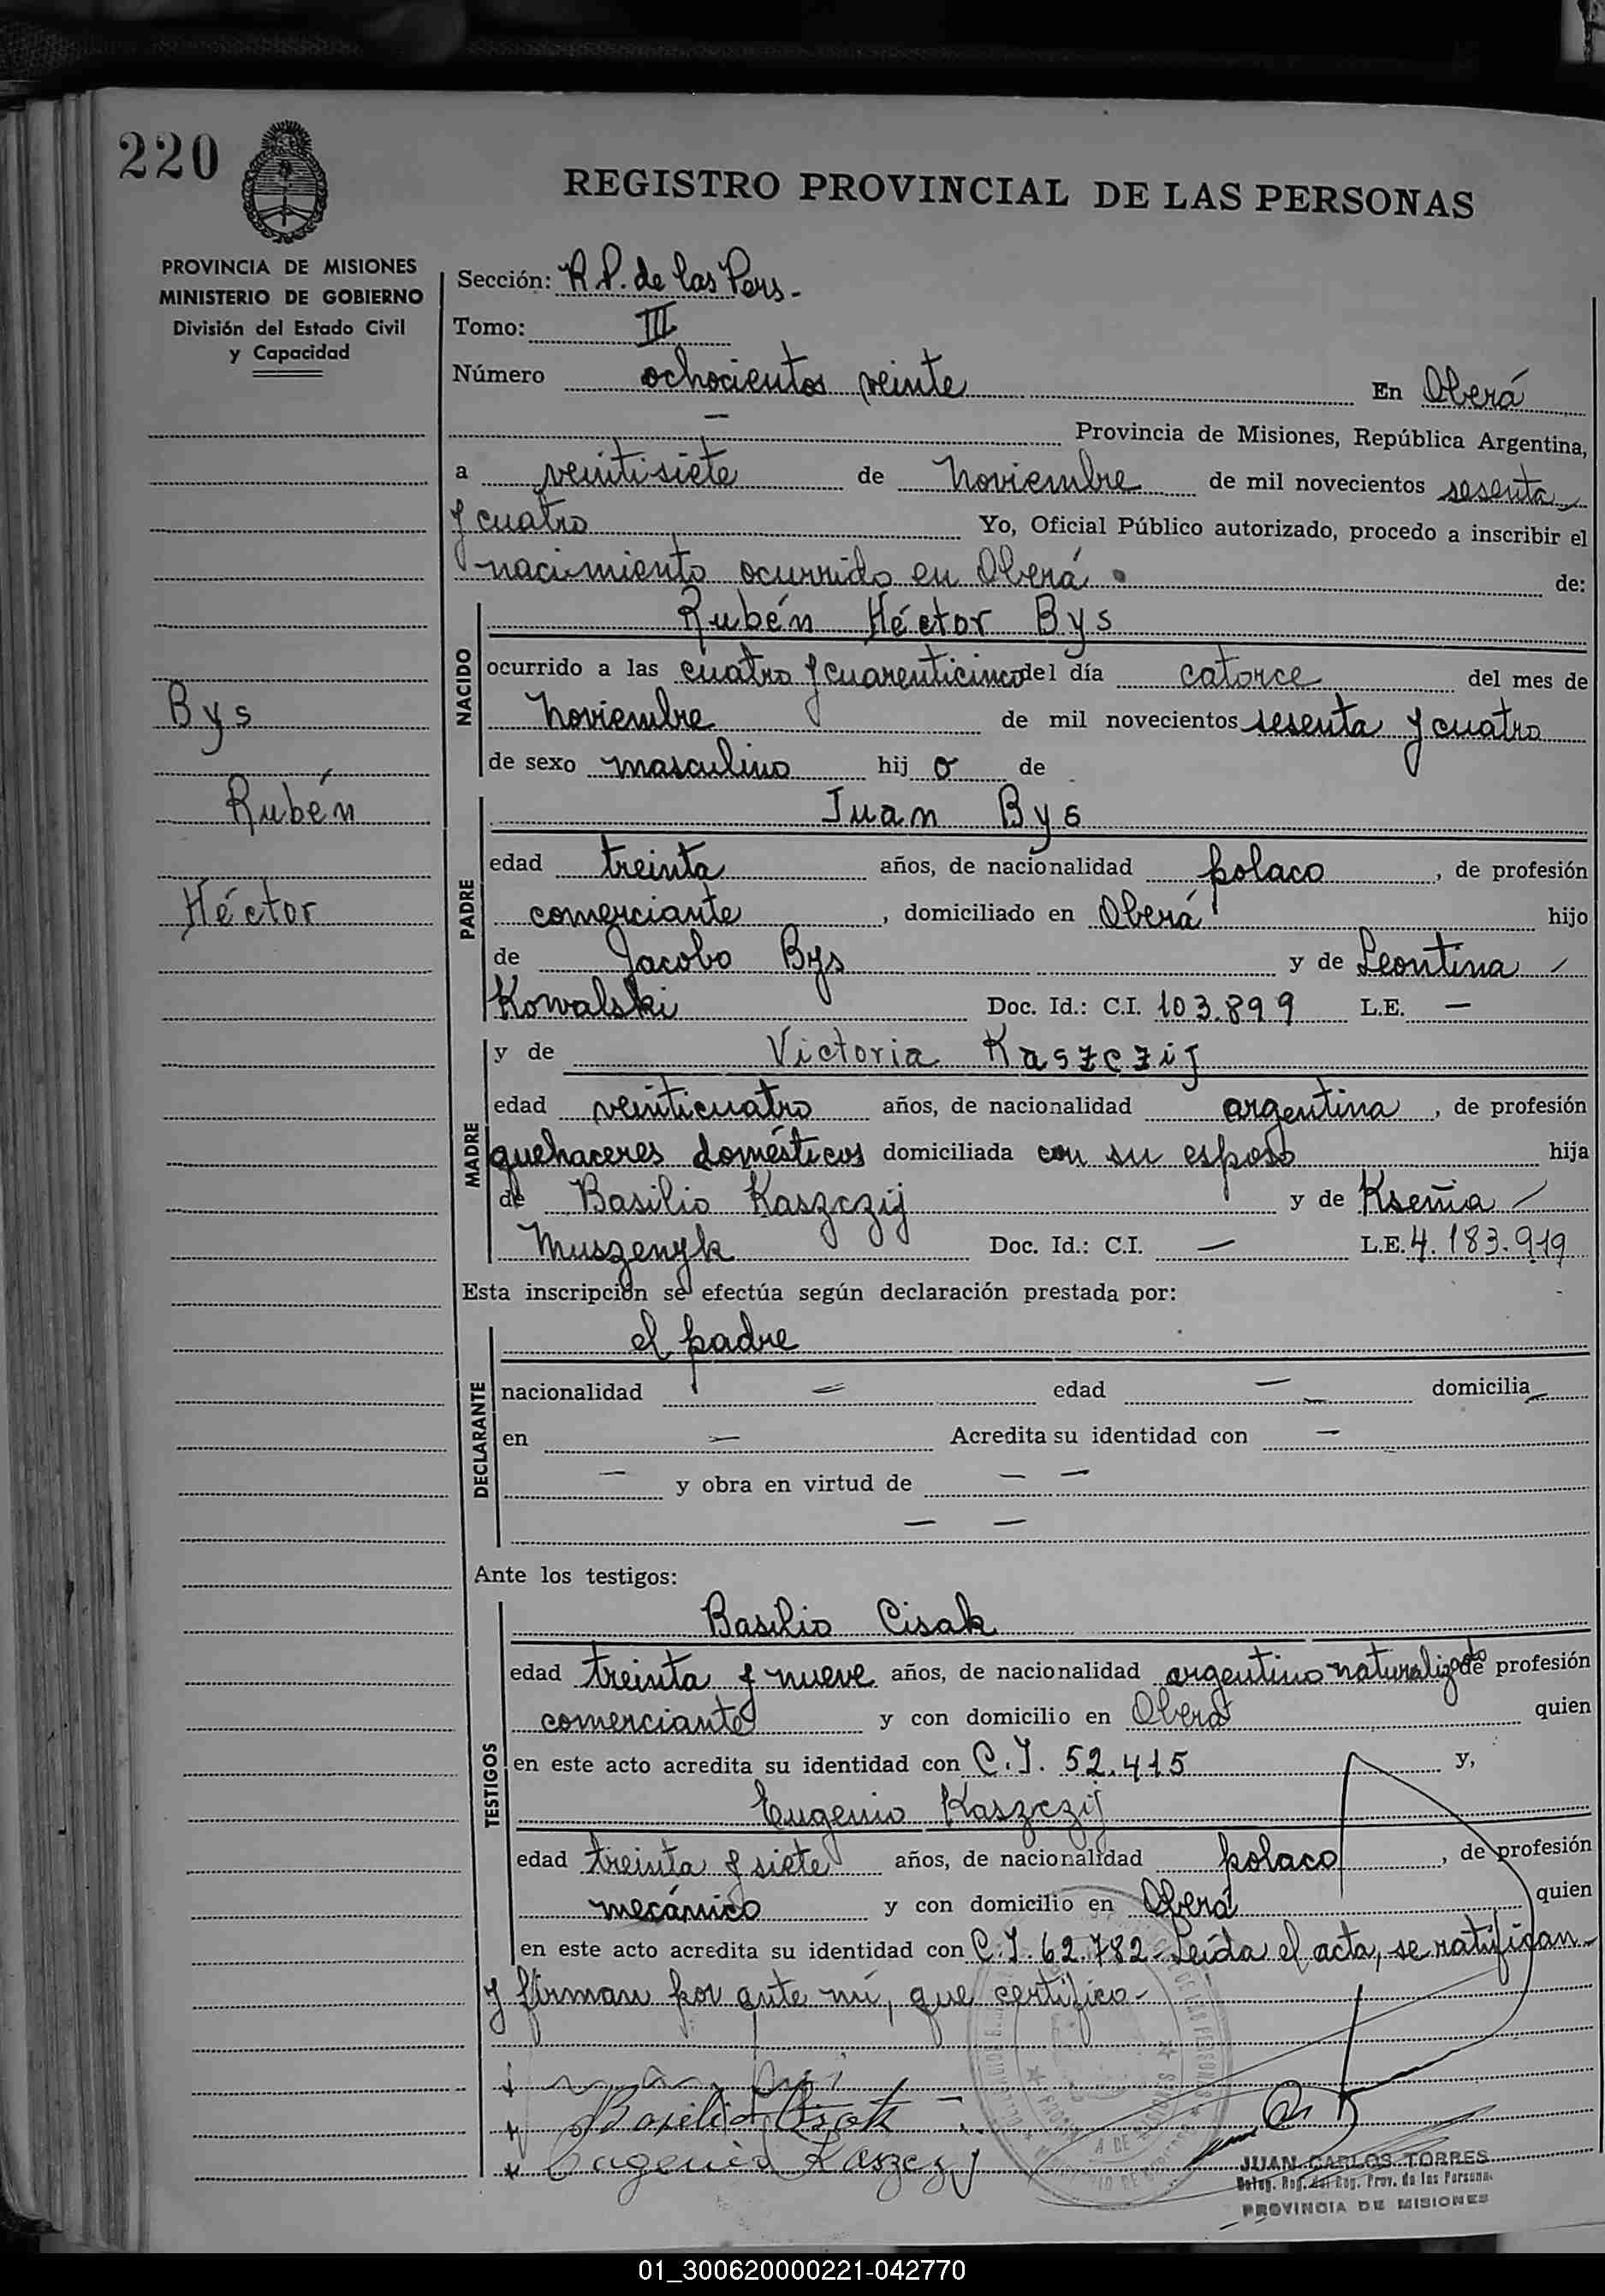 220
REGISTRO PROVINCIAL DE LAS PERSONAS
PROVINCIA DE MISIONES
MINISTERIO DE GOBIERNO
División del Estado Civil
y Capacidad
Sección: R.P. de las Pers.-
Tomo: III
Número ochocientos veinte En Oberá
— Provincia de Misiones, República Argentina,
a veintisiete de Noviembre de mil novecientos sesenta
y cuatro Yo, Oficial Público autorizado, procedo a inscribir el
nacimiento ocurrido en Oberá de:
NACIDO
Rubén Héctor Bys
ocurrido a las cuatro y cuarenticinco del día catorce del mes de
Noviembre de mil novecientos sesenta y cuatro
de sexo masculino hij o de
Bys
Rubén
Héctor
PADRE
Juan Bys
edad treinta años, de nacionalidad polaco, de profesión
comerciante, domiciliado en Oberá hijo
de Jacobo Bys y de Leontina
Kowalski Doc. Id.: C.I. 103.899 L.E. —
MADRE
y de Victoria Kaszczij
edad veinticuatro años, de nacionalidad argentina, de profesión
quehaceres domésticos domiciliada con su esposo hija
de Basilio Kaszczij y de Ksenia
Muszenyk Doc. Id.: C.I. — L.E. 4.183.919
Esta inscripción se efectúa según declaración prestada por:
DECLARANTE
el padre
nacionalidad — edad — domicilia
en — Acredita su identidad con —
— y obra en virtud de — —
— —
Ante los testigos:
TESTIGOS
Basilio Cisak
edad treinta y nueve años, de nacionalidad argentino naturalizado de profesión
comerciante y con domicilio en Oberá quien
en este acto acredita su identidad con C.I. 52.415 y,
Eugenio Kaszczij
edad treinta y siete años, de nacionalidad polaco, de profesión
mecánico y con domicilio en Oberá quien
en este acto acredita su identidad con C.I. 62.782 - Leída el acta, se ratifican
y firman por ante mí, que certifico-
Basilio Cisak
Eugenio Kaszczij
JUAN CARLOS TORRES
PROVINCIA DE MISIONES
01_300620000221-042770